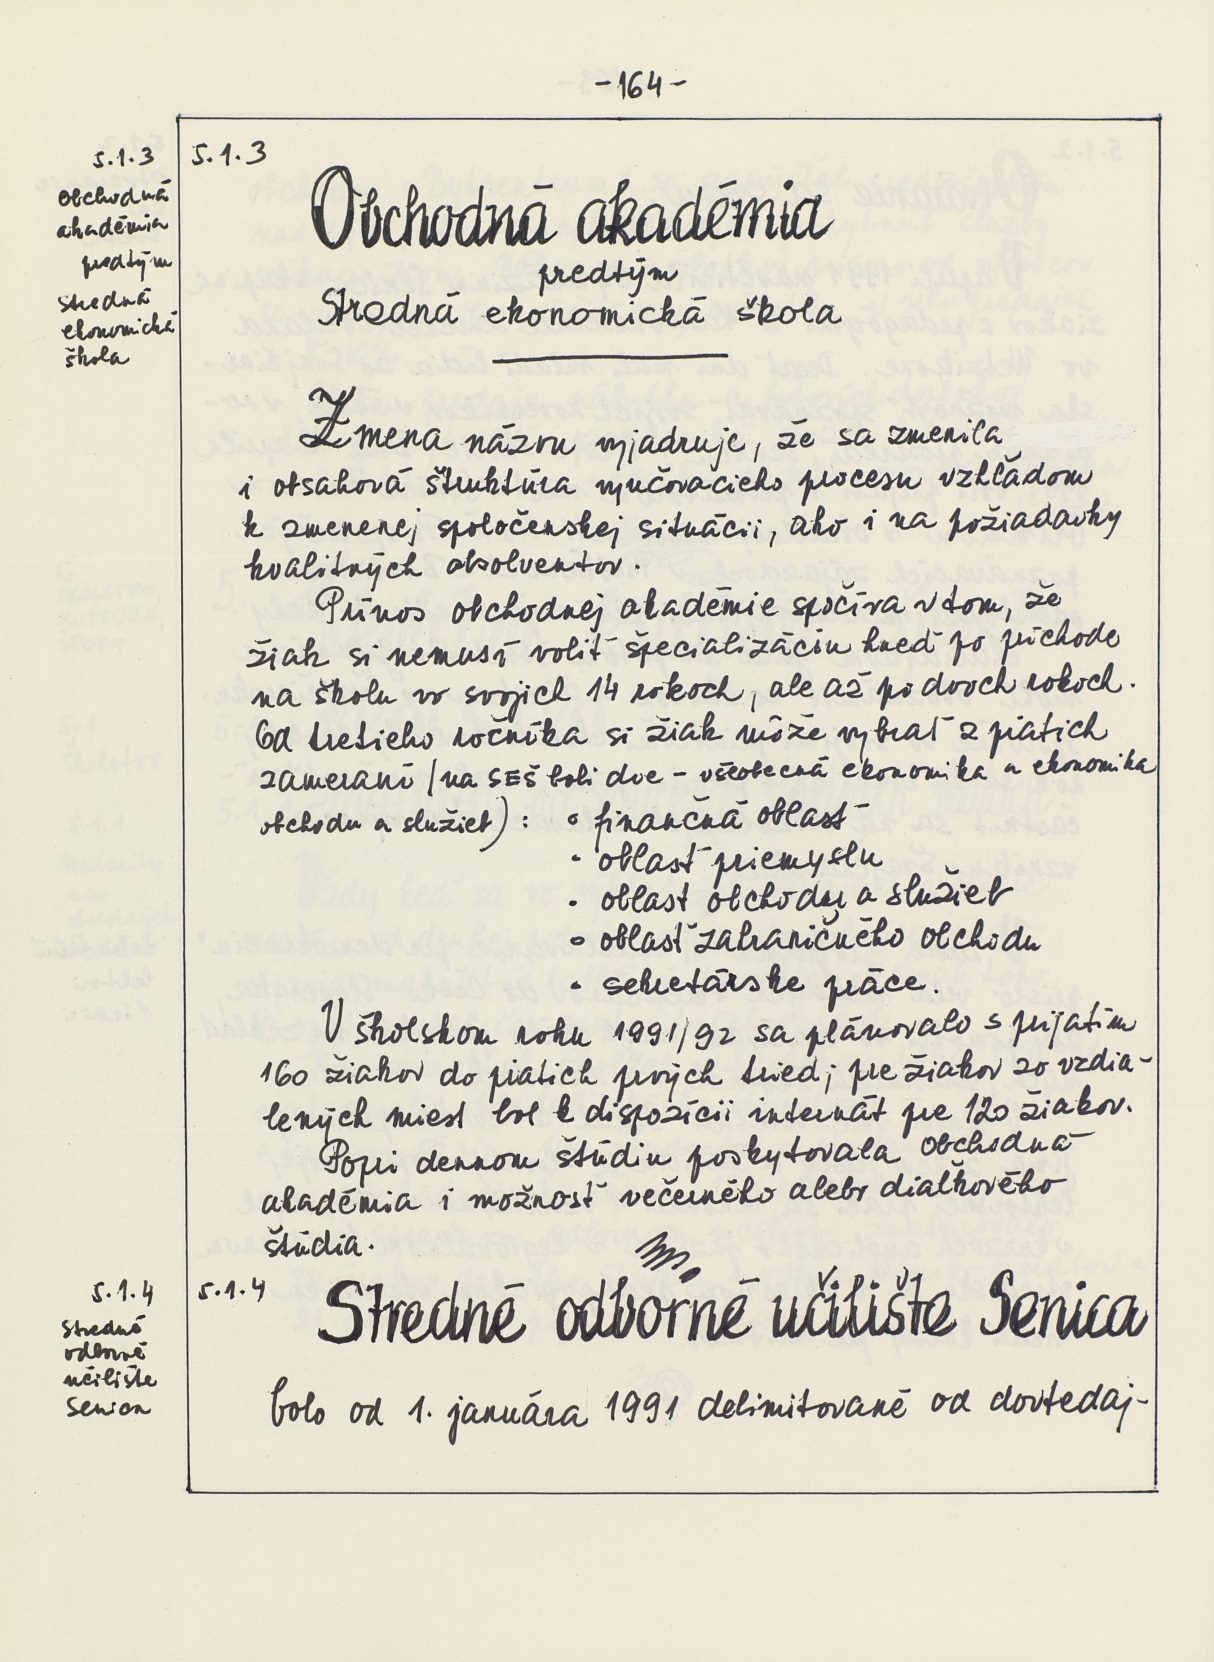 -164-
5.1.3
Obchodná
akadémia
predtým
Stredná
ekonomická
škola
5.1.3
Obchodná akadémia
predtým
Stredná ekonomická škola
Zmena názvu vyjadruje, že sa zmenila
i obsahová štruktúra vyučovacieho procesu vzhľadom
k zmenenej spoločenskej situácii, ako i na požiadavky
kvalitných absolventov.
Prínos obchodnej akadémie spočíva v tom, že
žiak si nemusí voliť špecializáciu hneď po príchode
na školu vo svojich 14 rokoch, ale až po dvoch rokoch.
Od tretieho ročníka si žiak môže vybrať z piatich
zameraní /na SEŠ boli dve - všeobecná ekonomika a ekonomika
obchodu a služieb):
• finančná oblasť
• oblasť priemyslu
• oblasť obchodu a služieb
• oblasť zahraničného obchodu
• sekretárske práce.
V školskom roku 1991/92 sa plánovalo s prijatím
160 žiakov do piatich prvých tried; pre žiakov zo vzdia-
lených miest bol k dispozícii internát pre 120 žiakov.
Popri dennom štúdiu poskytovala Obchodná
akadémia i možnosť večerného alebo diaľkového
štúdia.
5.1.4
Stredné
odborné
učilište
Senica
5.1.4
Stredné odborné učilište Senica
bolo od 1. januára 1991 delimitované od dovtedaj-